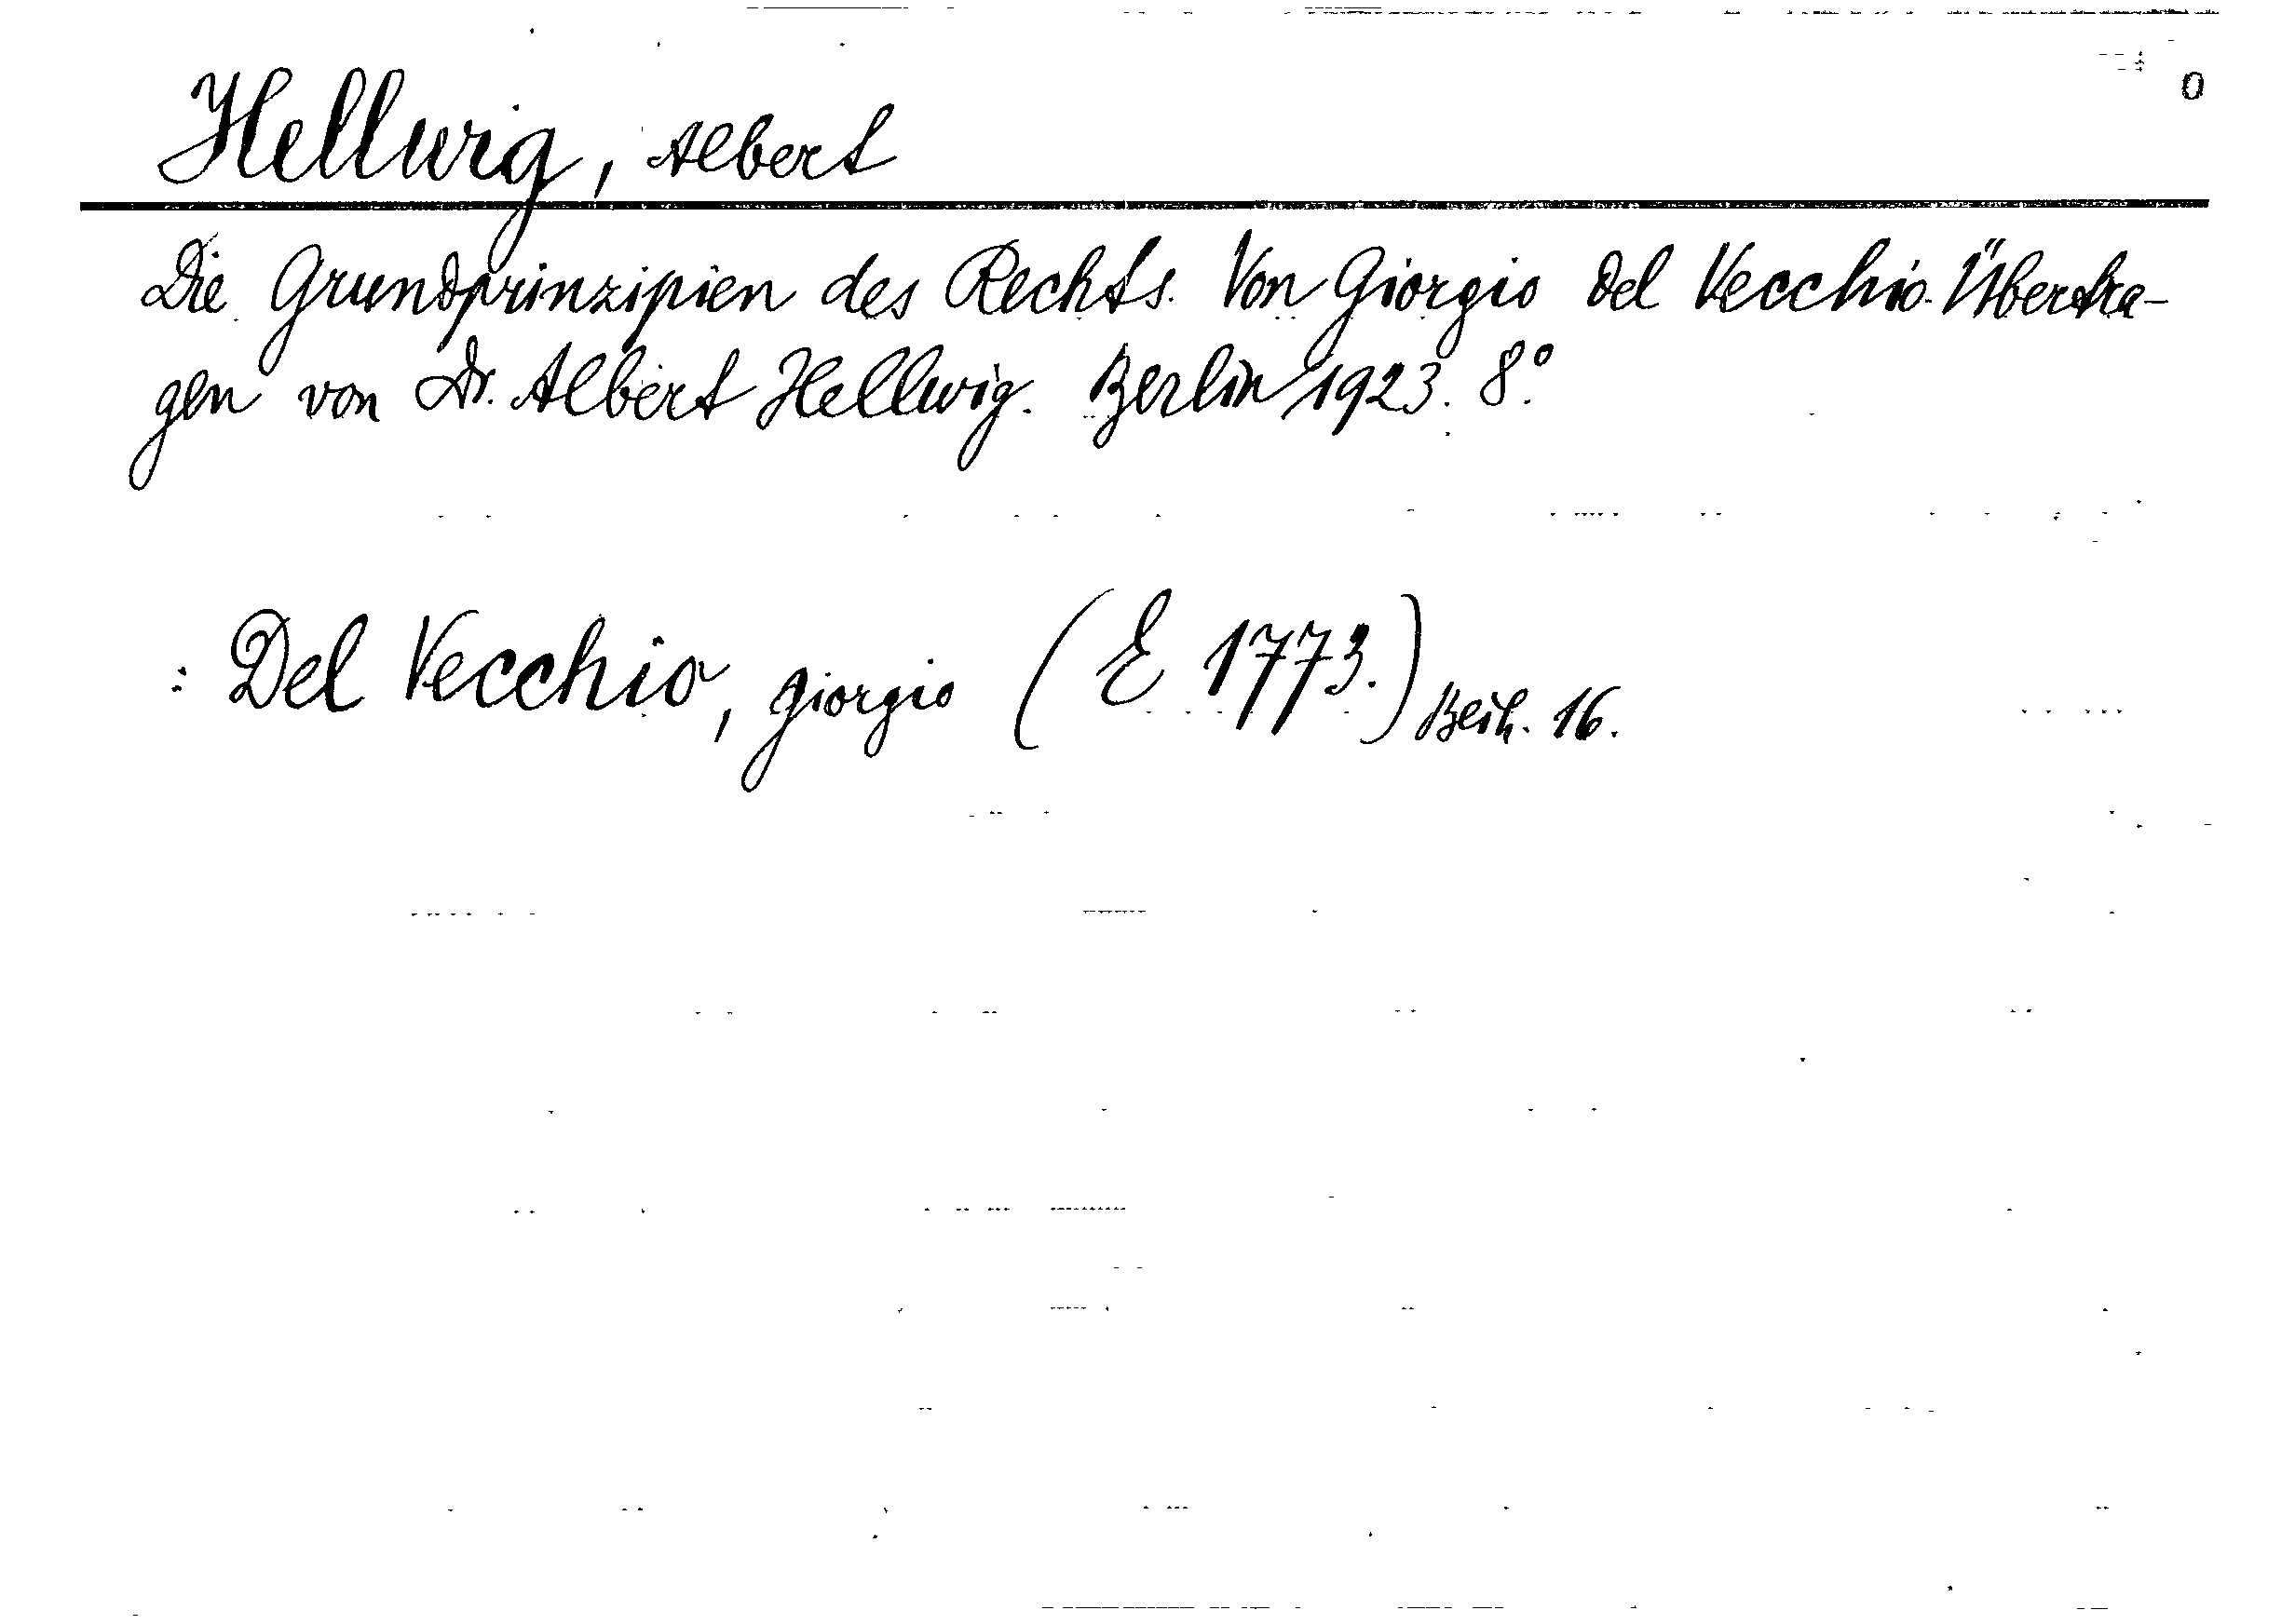 0
Hellwig, Albert
Die Grundprinzipien des Rechts. Von Giorgio Del Vecchio. Übertra-
gen von Dr. Albert Hellwig. Berlin 1923. 8°.
: Del Vecchio, Giorgio (E 1773.) Beih. 16.